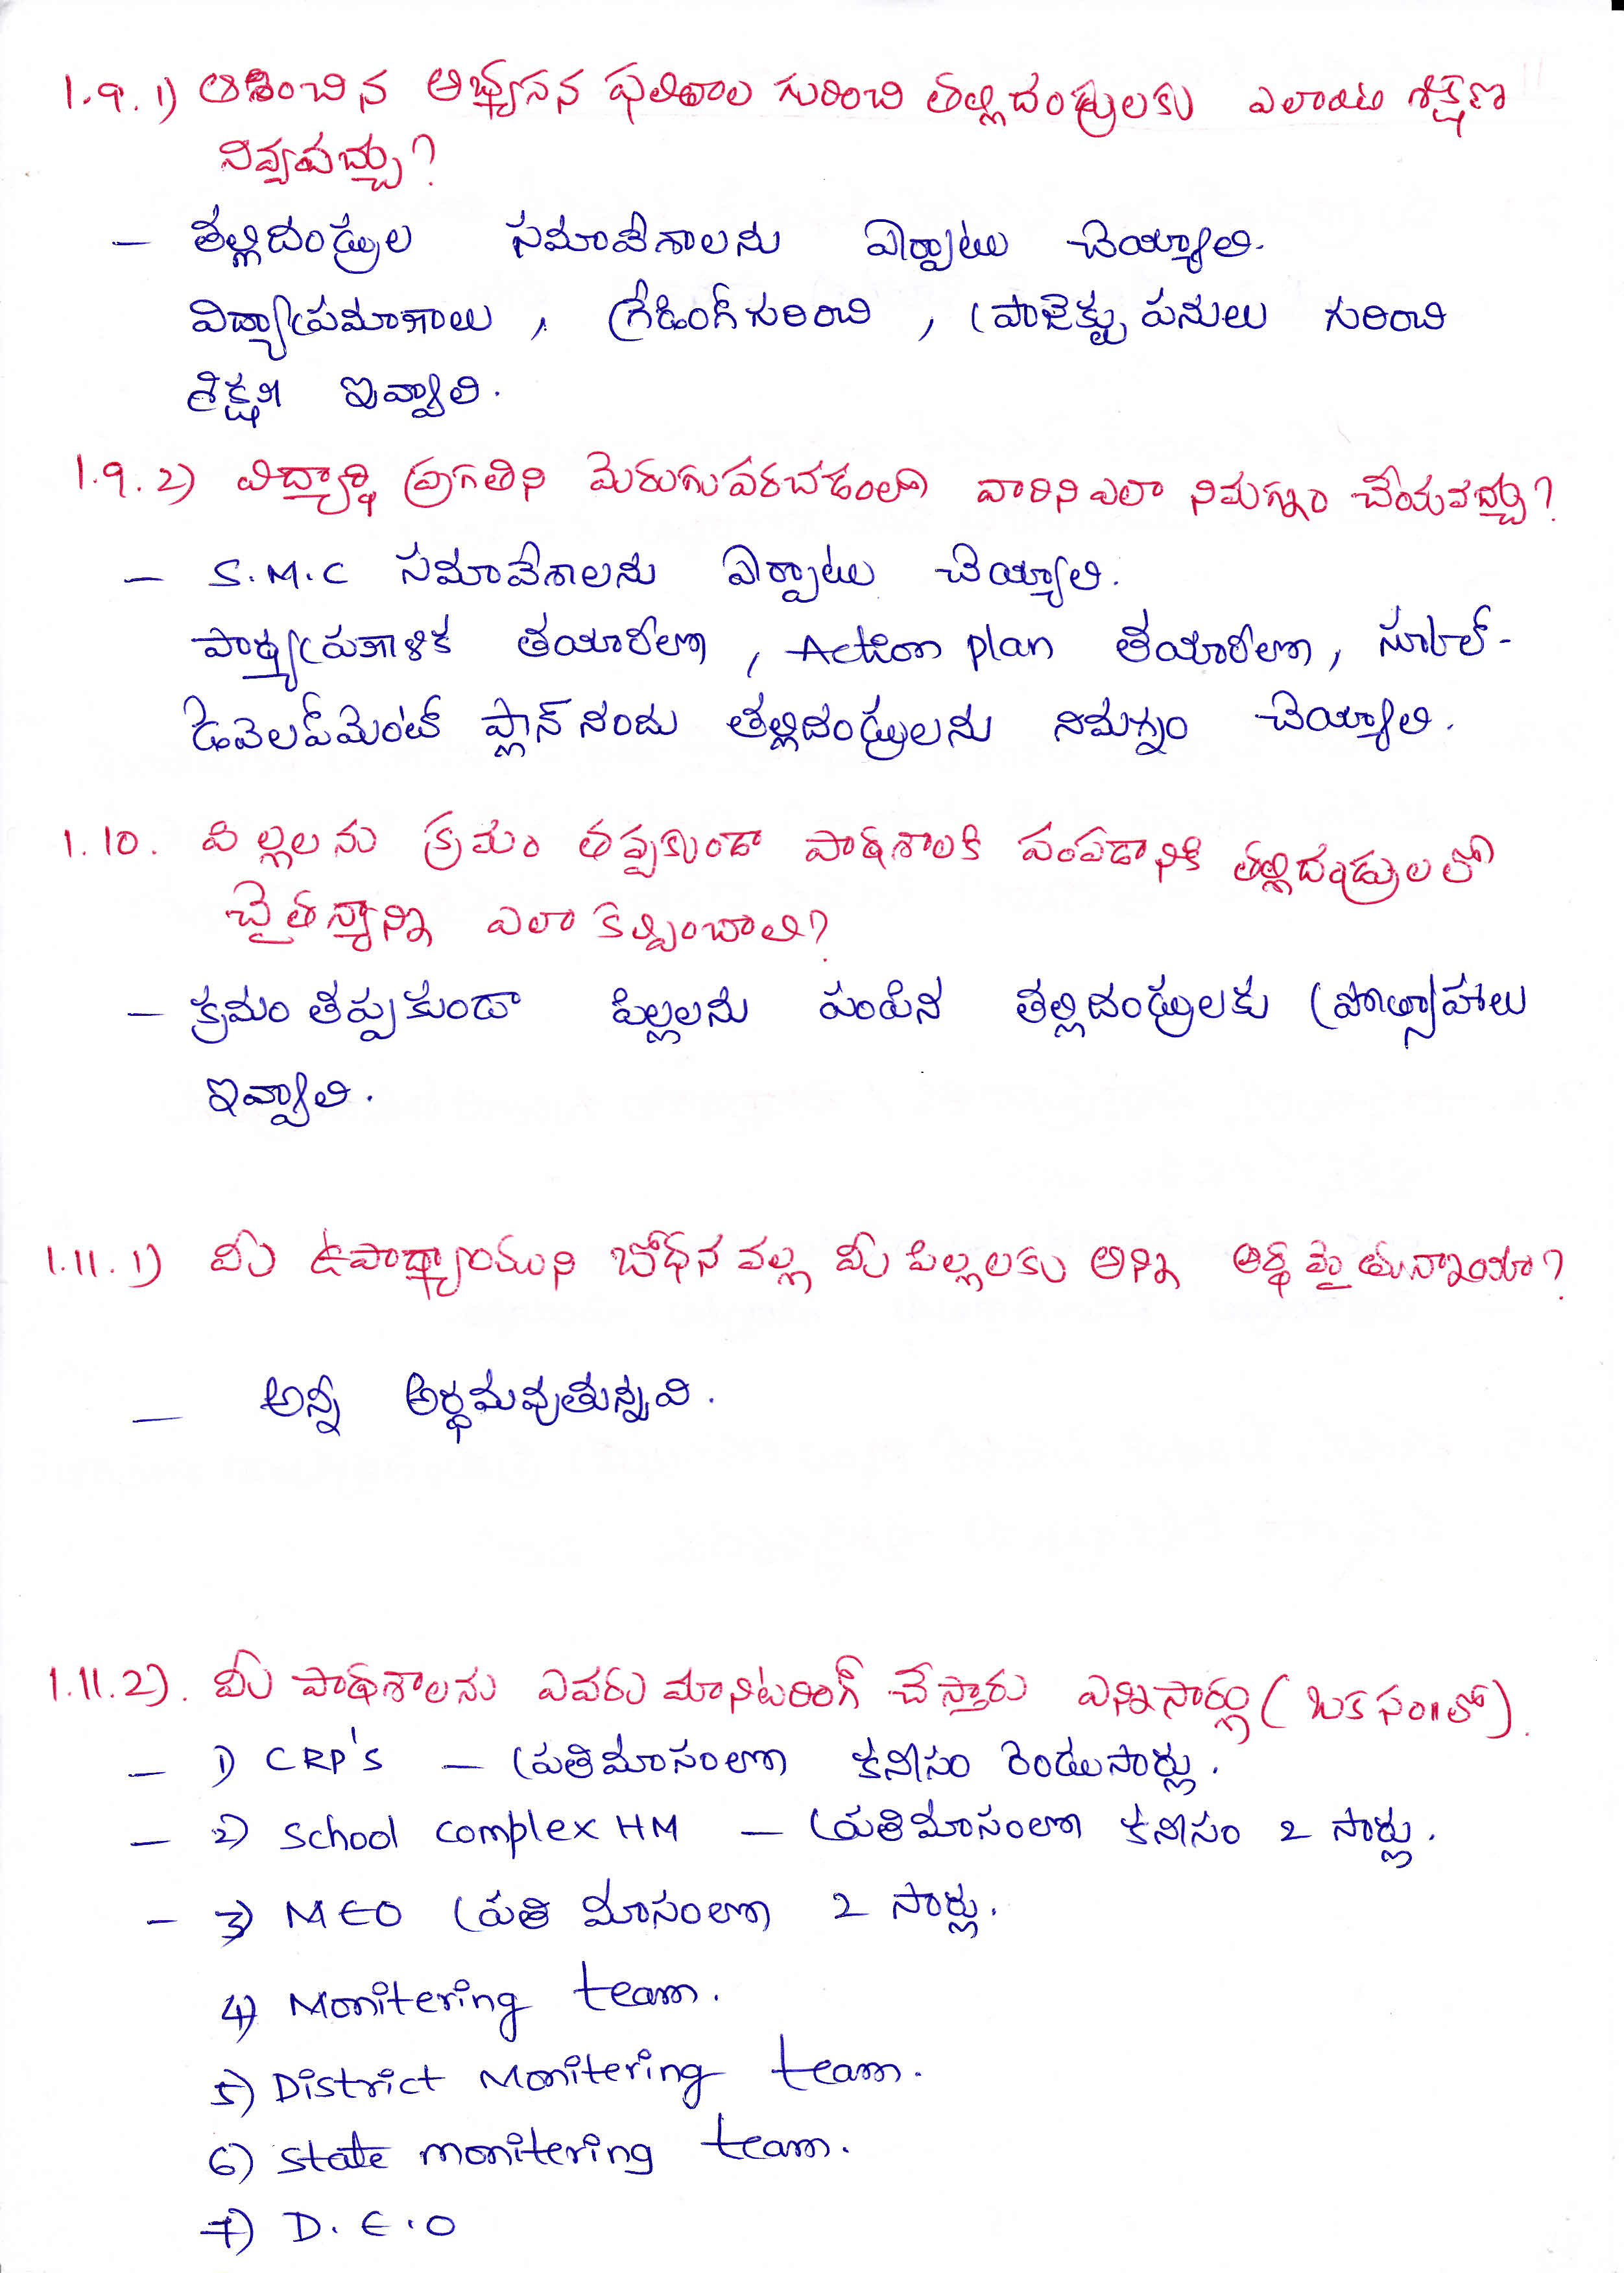 1.9.1) ఆశించిన అభ్యసన ఫలితాల గురించి తల్లిదండ్రులకు ఎలాంటి శిక్షణ
నివ్వవచ్చు?
– తల్లిదండ్రుల సమావేశాలను ఏర్పాటు చెయ్యాలి.
విద్యాప్రమాణాలు, గ్రేడింగ్ గురించి, ప్రాజెక్టు పనులు గురించి
శిక్షణ ఇవ్వాలి.
1.9.2) విద్యార్థి ప్రగతిని మెరుగుపరచడంలో వారిని ఎలా నిమగ్నం చేయవచ్చు?
– S.M.C సమావేశాలను ఏర్పాటు చెయ్యాలి.
పాఠ్యప్రణాళిక తయారీలో, Action plan తయారీలో, స్కూల్-
డెవలప్‌మెంట్ ప్లాన్ నందు తల్లిదండ్రులను నిమగ్నం చెయ్యాలి.
1.10. పిల్లలను క్రమం తప్పకుండా పాఠశాలకి పంపడానికి తల్లిదండ్రులలో
చైతన్యాన్ని ఎలా కల్పించాలి?
– క్రమం తప్పకుండా పిల్లలను పంపిన తల్లిదండ్రులకు ప్రోత్సాహాలు
ఇవ్వాలి.
1.11.1) మీ ఉపాధ్యాయుని బోధన వల్ల మీ పిల్లలకు అన్ని అర్థమైతున్నాయా?
– అన్నీ అర్థమవుతున్నవి.
1.11.2). మీ పాఠశాలను ఎవరు మానిటరింగ్ చేస్తారు ఎన్నిసార్లు (ఒక సం॥లో).
– 1) CRP's – ప్రతిమాసంలో కనీసం రెండుసార్లు.
– 2) School complex HM – ప్రతిమాసంలో కనీసం 2 సార్లు.
– 3) MEO ప్రతి మాసంలో 2 సార్లు.
4) Monitering team.
5) District Monitering team.
6) State monitering team.
7) D.E.O